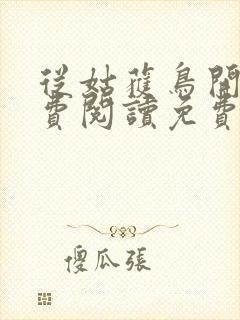 從姑蘇鳥開
費閱讀免費
傻瓜張